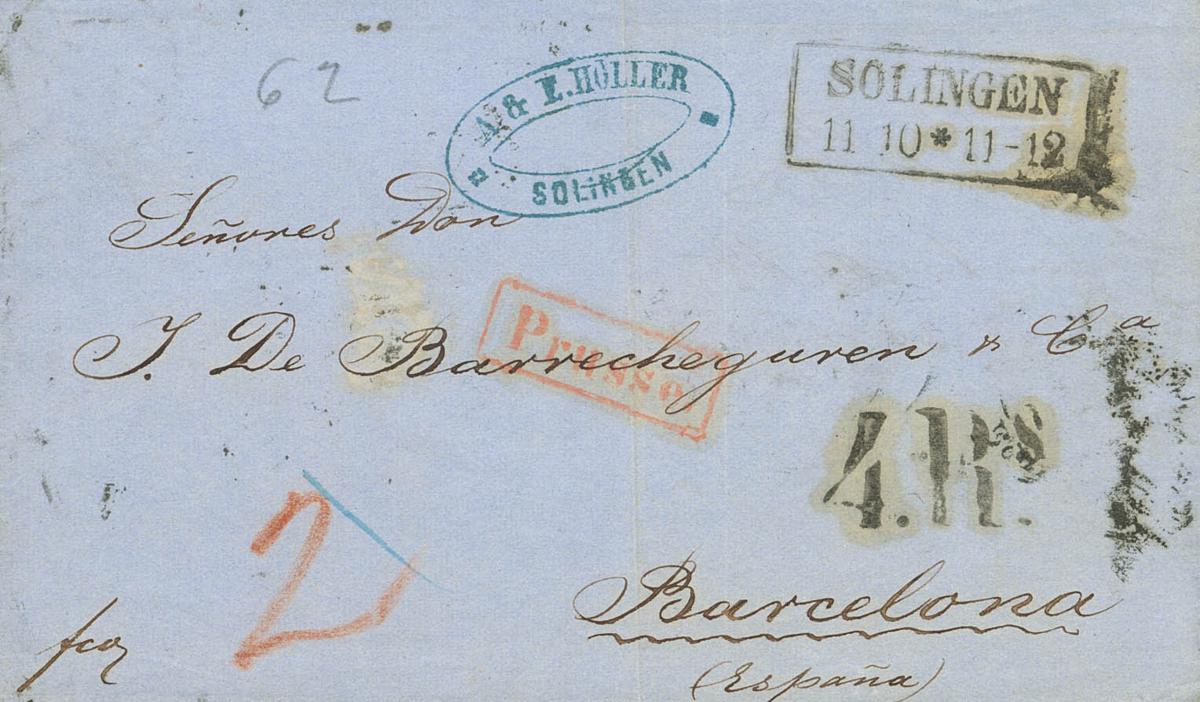 62
A & E. HÖLLER
SOLINGEN
SOLINGEN
11 10 * 11-12
Señores Don
J. De Barrecheguren & Cª
Prusse
4. Rs.
2
Barcelona
(España)
fco